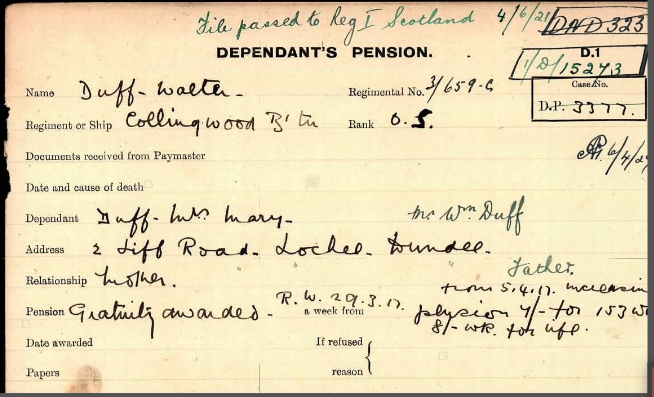 File passed to Reg I Scotland 4/6/21 DAD 323
DEPENDANT'S PENSION.
D.1
1/D/15273
Name Duff - Walter - Regimental No. 3/659-C
Case No.
D.P. 3377.
Regiment or Ship Collingwood B'tn Rank O.S.
Documents received from Paymaster
6/4/2
Date and cause of death
Dependant Duff - Mrs Mary - Mr Wm Duff
Address 2 Liff Road - Lochee - Dundee.
Relationship Mother. " " " Father.
from 5.4.17.
Pension Gratuity awarded - R.W. 29.3.17. a week from 4/- for 153 w
8/- wk. for life.
Date awarded If refused
Papers reason